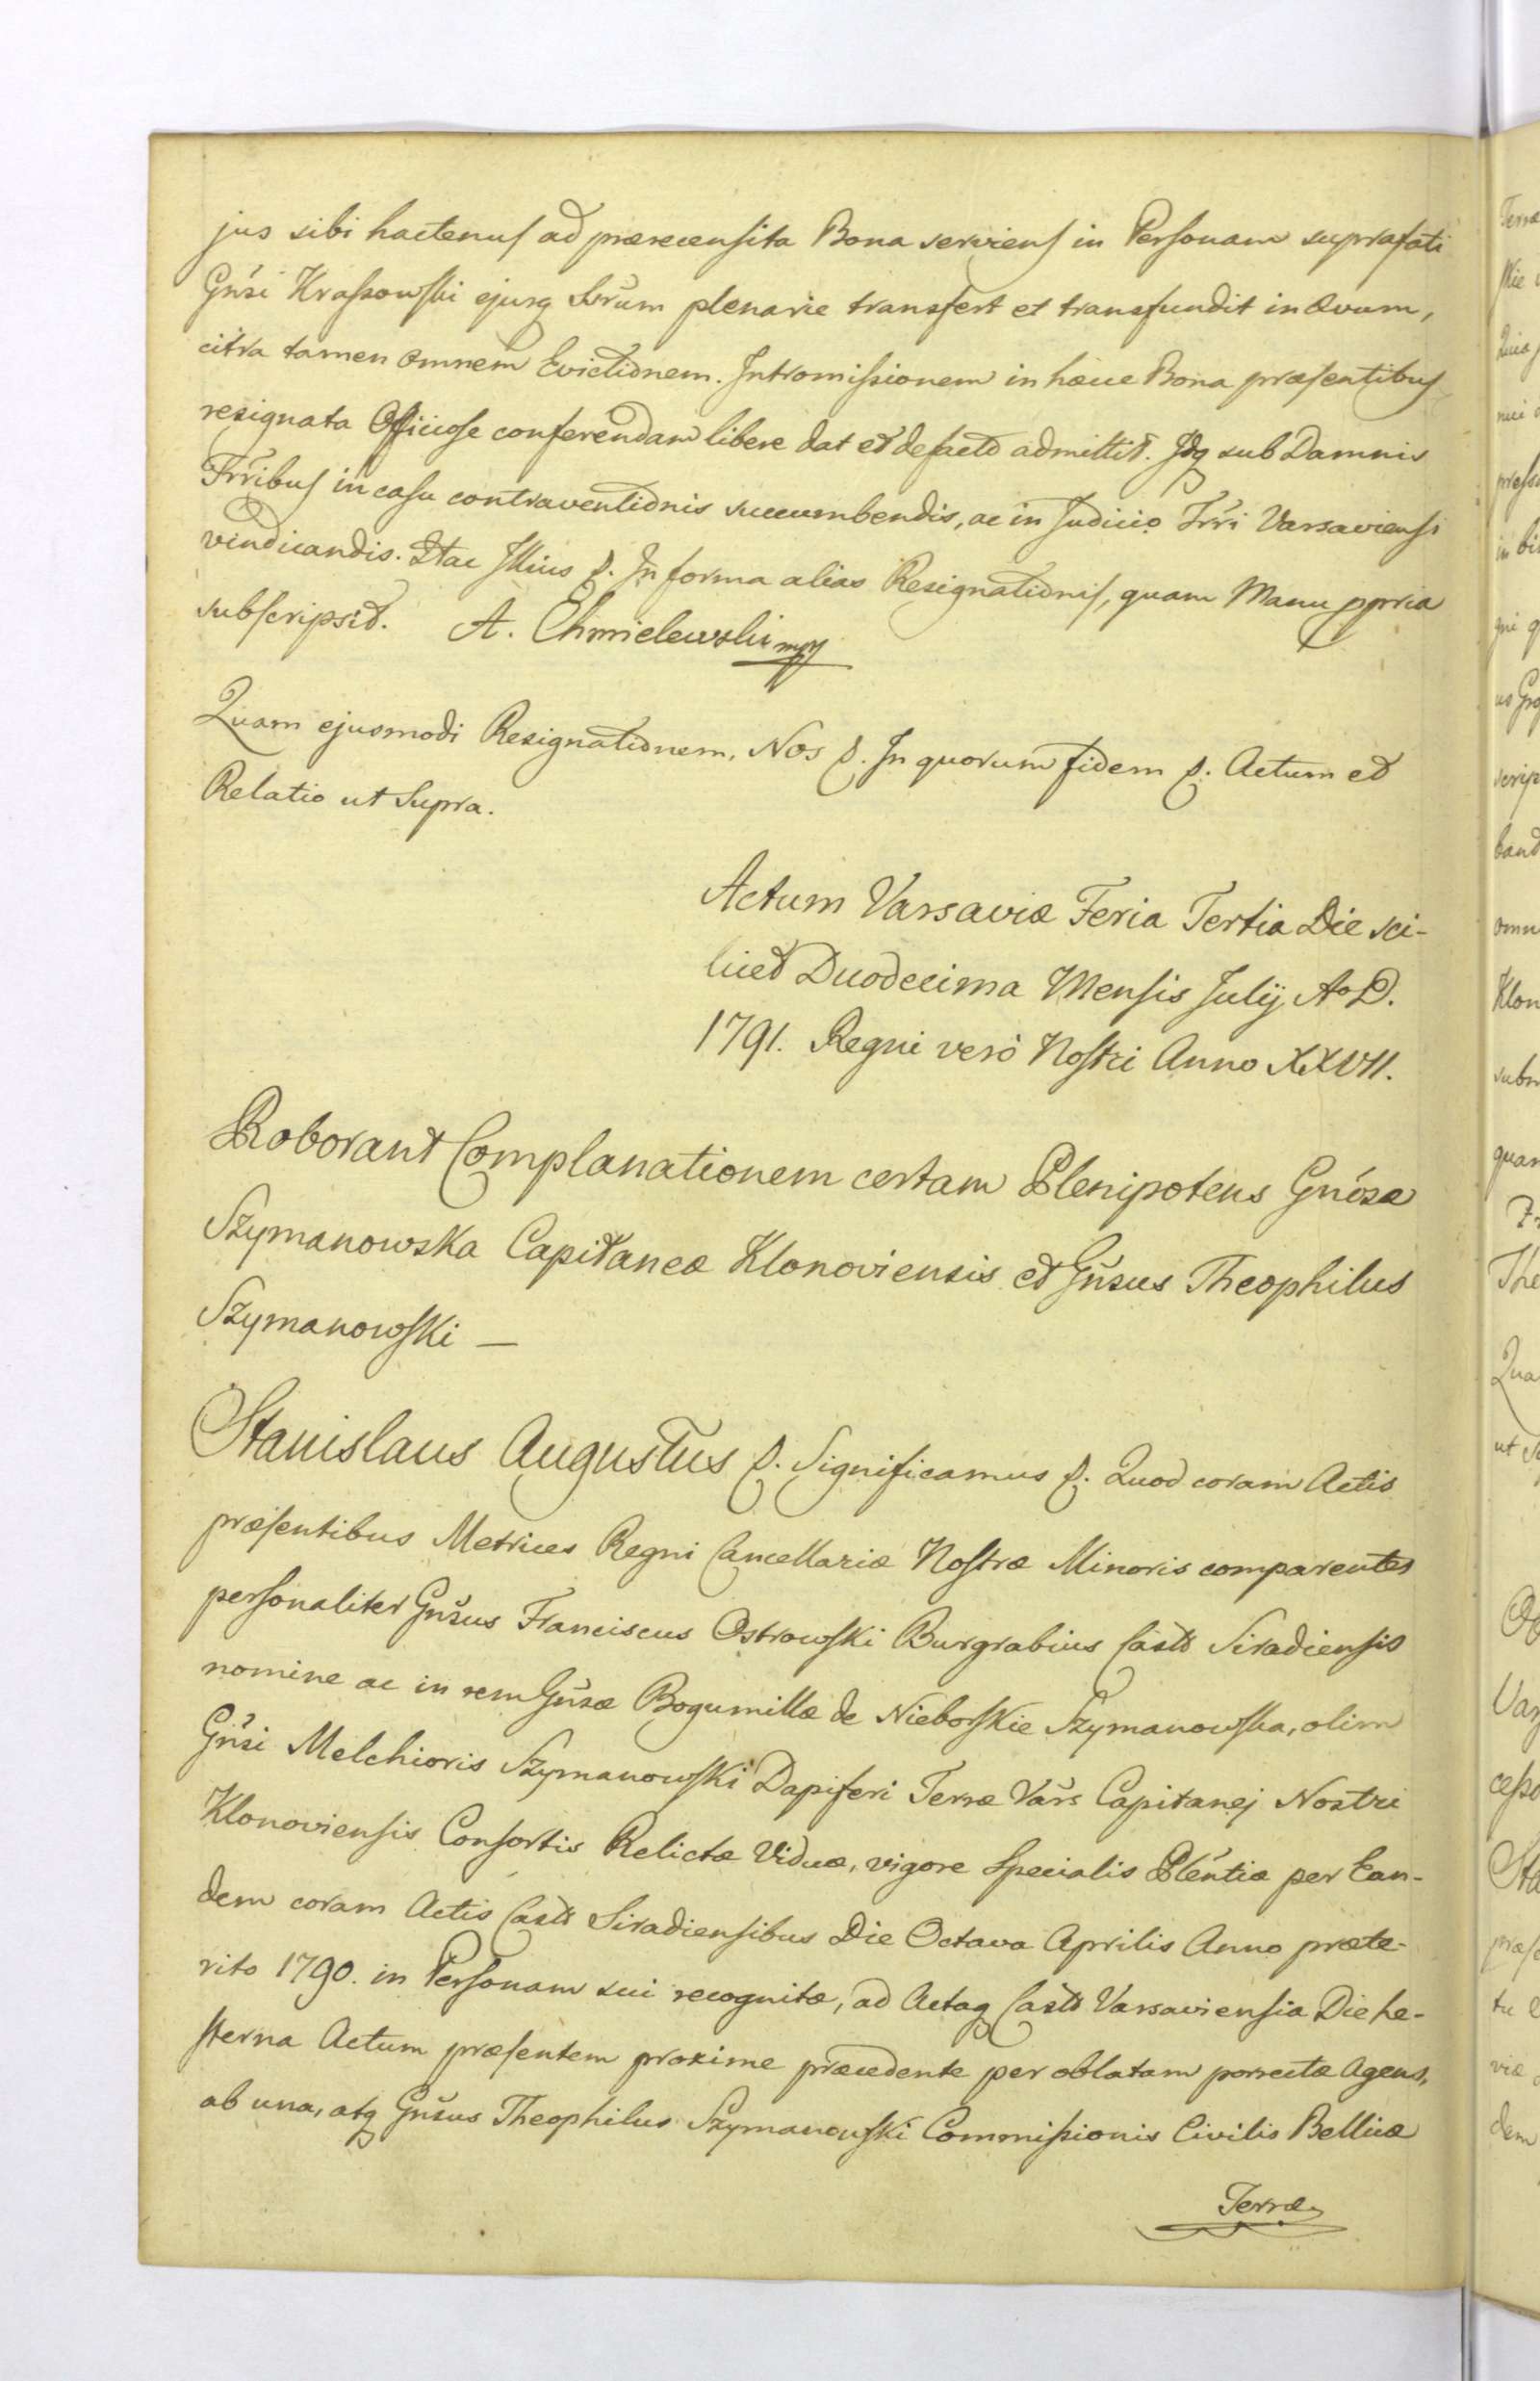 jus sibi hactenus ad præcensita Bona serviens in Personam suprafati
Gñsi Krassowski ejusq Svrum plenarie transfert et transfundit in Ævum,
citra tamen omnem Evictionem. Intromissionem in hæcce Bona præsentibus
resignata Officiose conferendam libere dat et defacto admittit. Idq sub Damnis
Trribus in casu contraventionis succumbendis, ac in Judicio Trri Varsaviensi
vindicandis. Stac Illius p. In forma alias Resignationis, quam Manu ppria
subscripsit. A. Chmielewski mpp
Quam ejusmodi Resignationem, Nos p. In quorum fidem p. Actum et
Relatio ut Supra.
Actum Varsaviæ Feria Tertia Die sci-
licet Duodecima Mensis Julij Ao D.
1791. Regni verò Nostri Anno XXVII.
Roborant Complanationem certam Plenipotens Gnósæ
Szymanowska Capitaneæ Klonoviensis et Gñsus Theophilus
Szymanowski —
Stanislaus Augustus p. Significamus p. Quod coram Actis
præsentibus Metrices Regni Cancellariæ Nostræ Minoris comparentes
personaliter Gñsus Franciscus Ostrowski Burgrabius Casts Siradiensis
nomine ac in rem Gñsæ Bogumillæ de Nieborskie Szymanowska, olim
Gñsi Melchioris Szymanowski Dapiferi Terræ Vars Capitanej Nostri
Klonoviensis Consortis Relictæ Viduæ, vigore Specialis Plentiæ per Ean-
dem coram Actis Casts Siradiensibus Die Octava Aprilis Anno præte-
rito 1790. in Personam sui recognitæ, ad Actaq Casts Varsaviensia Die he-
sterna Actum præsentem proxime præcedente per oblatam porrectæ Agens,
ab una, atq Gñsus Theophilus Szymanowski Commissionis Civilis Bellicæ
Terræ